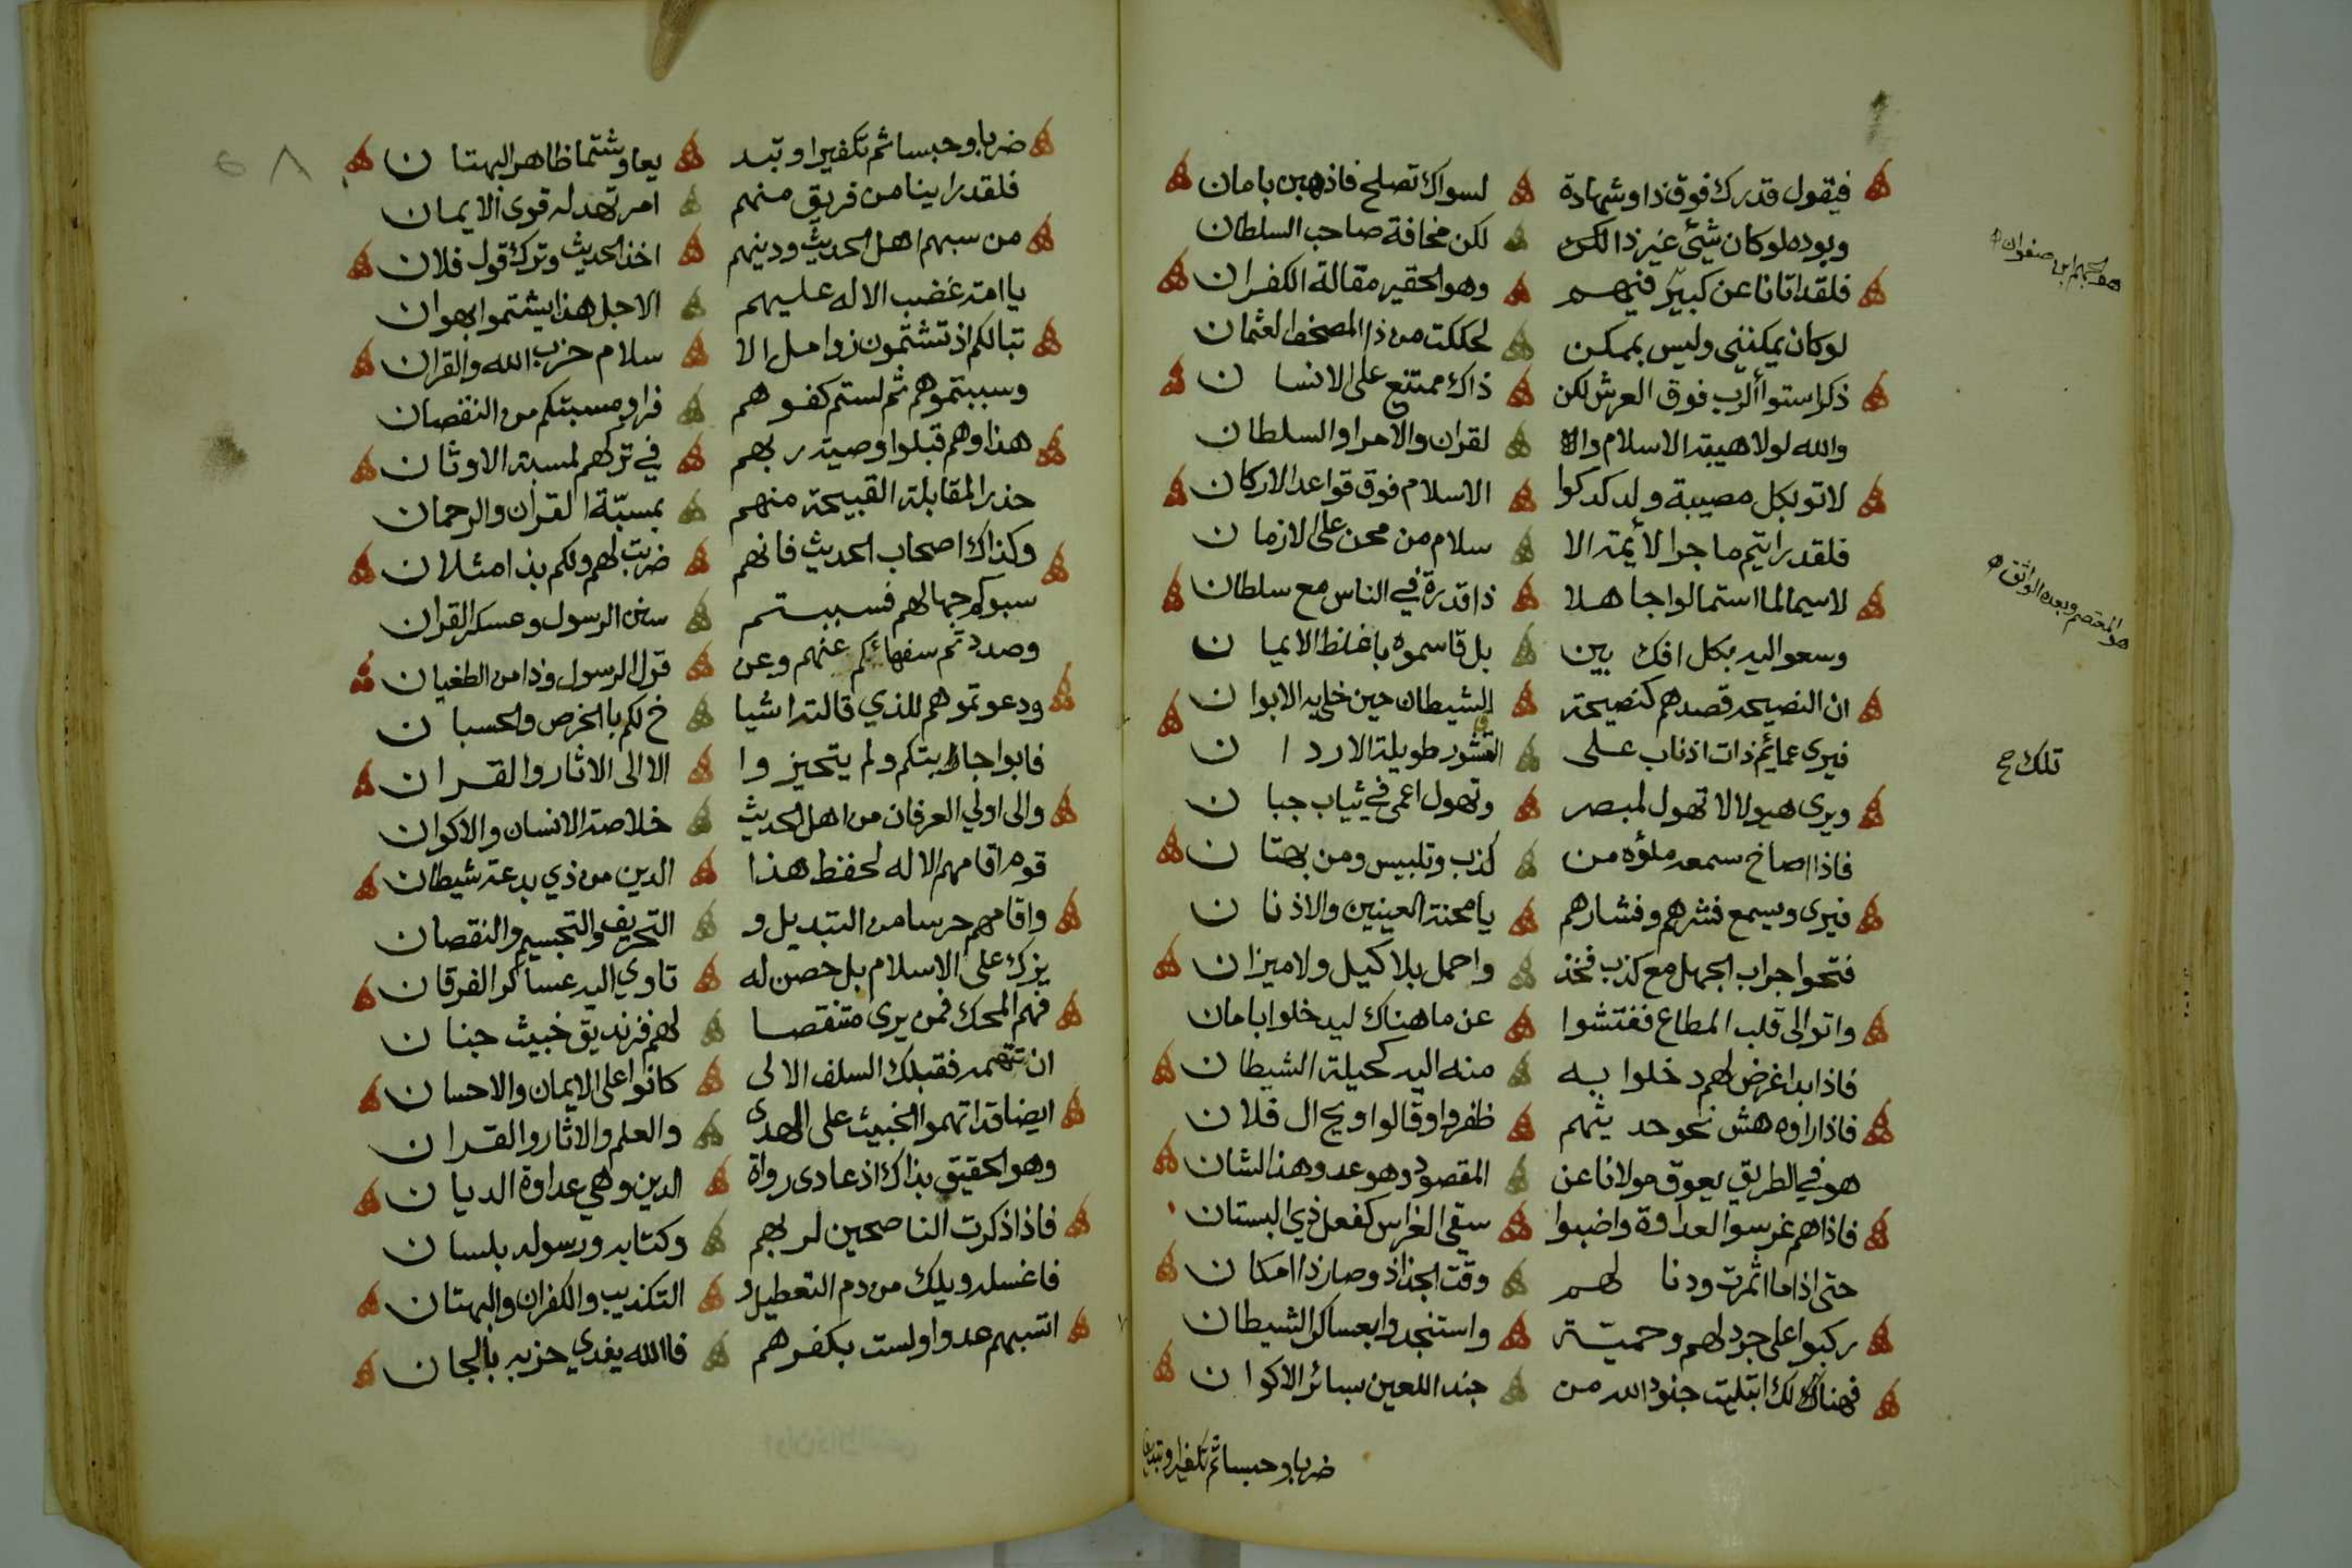 فيقول قدرك فوق ذا وشهادة لسواك تصلح فاذهبن بامان
وبوده لو كان شيئ غير ذا لكن لكن مخافة صاحب السلطان
فلقد اتانا عن كبير فيهم وهو الحقير مقالة الكفران
هو الجهم ابن صفوان
لو كان يمكنني وليس بممكن لحككت من ذا المصحف العثمان
ذكر استواأ الرب فوق العرش لكن ذاك ممتنع على الانسان
والله لولا هيبة الاسلام والا لقران والامرا والسلطان
لاتو بكل مصيبة ولدكدكوا الاسلام فوق قواعد الاركان
فلقد رايتم ما جرا لأيمة الا سلام من محن على الازمان
لاسيما لما استمالوا جاهلا ذا قدرة في الناس مع سلطان
هو المعتصم وبعده الواثق
وسعو اليه بكل افك بين بل قاسموه باغلظ الايمان
ان النصيحه قصدهم كنصيحة الشيطان حين خلا به الابوان
فيرى عمائم ذات اذناب على القشور طويلة الاردان
تلك ح
ويرى هيولا لا تهول لمبصر وتهول اعمى في ثياب جبان
فاذا اصاخ سمعه ملؤه من كذب وتلبيس ومن بهتان
فيرى ويسمع فشرهم وفشارهم يا محنة العينين والاذنان
فتحوا جراب الجهل مع كذب فخذ واحمل بلا كيل ولا ميزان
واتو الى قلب المطاع ففتشوا عن ما هناك ليدخلوا بامان
فاذا بدا غرض لهم دخلوا به منه اليه كحيلة الشيطان
فاذا راوه هش نحو حديثهم ظفروا وقالوا ويح ال فلان
هو في الطريق يعوق مولانا عن المقصود وهو عدو هذا الشان
فاذا هم غرسوا العداوة واضبوا سقي الغراس كفعل ذي البستان
حتى اذا ما اثمرت ودنا لهم وقت الجذاذ وصار ذا امكان
ركبوا على جرد لهم وحمية واستنجدوا بعساكر الشيطان
فهنالك ابتليت جنود الله من جند اللعين بسائر الاكوان
ضربا وحبسا ثم تكفيرا وتبديعا
ضربا وحبسا ثم تكفيرا وتبد يعا وشتما ظاهر البهتان
فلقد راينا من فريق منهم امر تهد له قوى الايمان
من سبهم اهل الحديث ودينهم اخذ الحديث وترك قول فلان
يا امة غضب الاله عليهم الاجل هذا يشتموا بهوان
تبا لكم اذ تشتمون زوامل الا سلام حزب الله والقران
وسببتموهم ثم لستم كفوهم فراو مسبتكم من النقصان
هذا وهم قبلوا وصية ربهم في تركهم لمسبة الاوثان
حذر المقابلة القبيحة منهم بمسبّة القران والرحمان
وكذاك اصحاب الحديث فانهم ضربت لهم ولكم بذا مثلان
سبوكم جهالهم فسببتم سنن الرسول وعسكر القران
وصددتم سفهائكم عنهم وعن قول الرسول وذا من الطغيان
ودعوتموهم للذي قالته اشيا خ لكم باالخرص والحسبان
فابوا جابتكم ولم يتحيزوا الا الى الاثار والقران
والى اولي العرفان من اهل الحديث خلاصة الانسان والاكوان
قوم اقامهم الاله لحفظ هذا الدين من ذي بدعة شيطان
واقامهم حرسا من التبديل و التحريف والتجسيم والنقصان
يزك على الاسلام بل حصن له تاوي اليه عساكر الفرقان
فهم المحك فمن يرى متنقصا لهم فزنديق خبيث جنان
ان تتهمه فقبلك السلف الالى كانوا على الايمان والاحسان
ايضا قد اتهموا الخبيث على الهدى والعلم والاثار والقران
وهو الحقيق بذاك اذ عادى رواة الدين وهي عداوة الديان
فاذا ذكرت الناصحين لربهم وكتابه ورسوله بلسان
فاغسله ويلك من دم التعطيل و التكذيب والكفران والبهتان
اتسبهم عدوا ولست بكفرهم فاالله يفدي حزبه بالجان